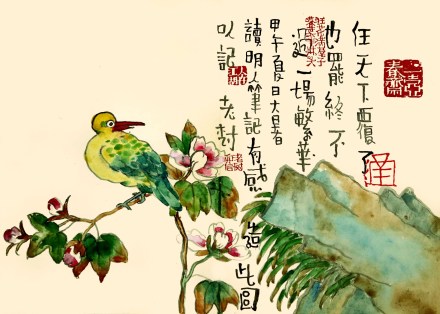 任天下覆了
也罷終不
過一場繁華
甲午夏日大暑
讀明人筆記有感造此圖
以記老封